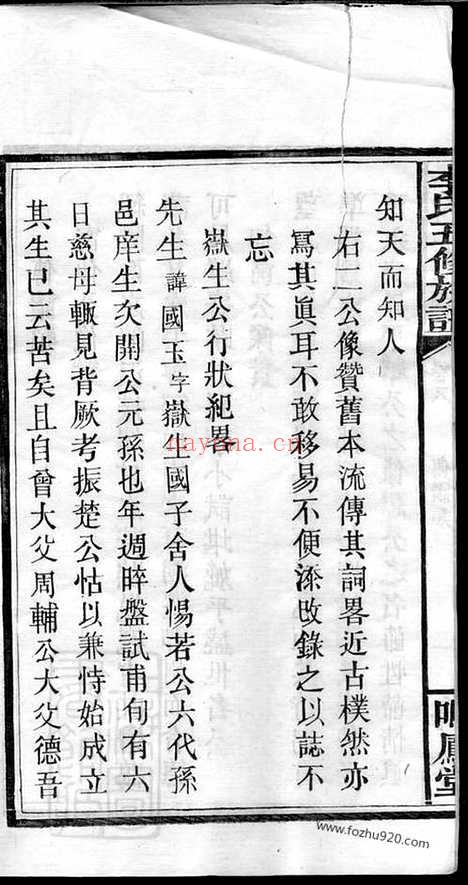 李氏五修族譜
鳳堂
知天而知人
右二公像贊舊本流傳其詞畧近古樸然亦
寫其真耳不敢移易不便添改錄之以誌不
忘
嶽生公行狀紀畧
先生諱國玉字嶽生國子舍人惕若公六代孫
邑庠生次開公元孫也年週晬盤試甫旬有六
日慈母輒見背厥考振楚公怙以兼恃始成立
其生已云苦矣且自曾大父周輔公大父德吾
nayona.cn
www.fozhu920.com